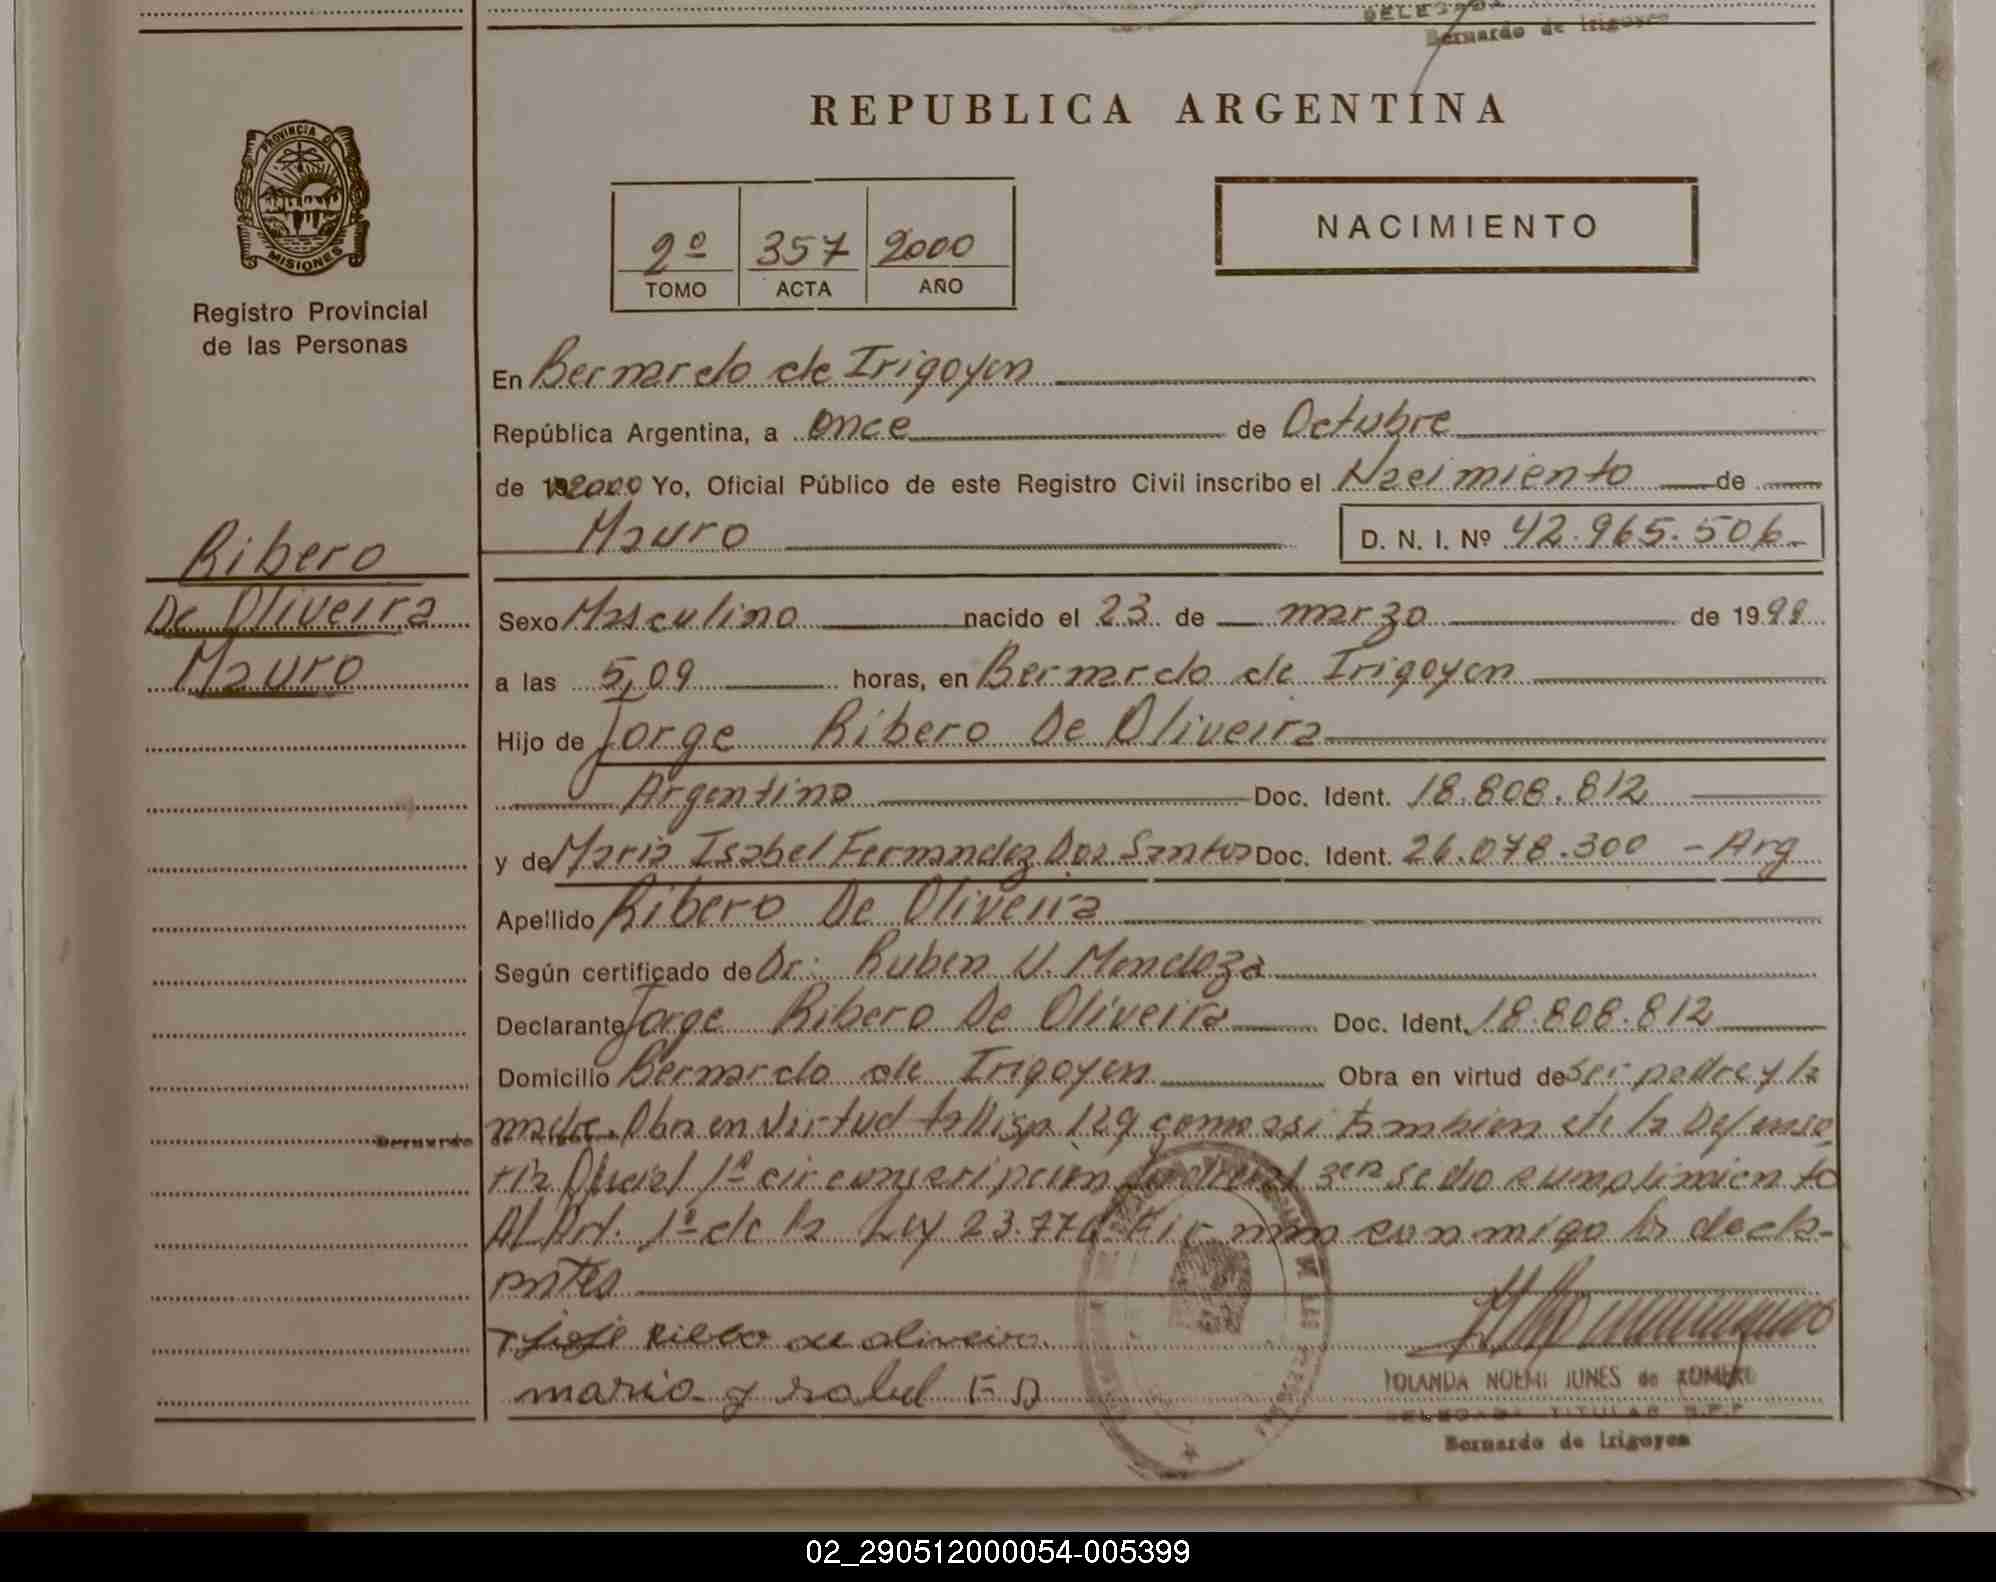 DELEGADA
Bernardo de Irigoyen
REPUBLICA ARGENTINA
PROVINCIA DE
MISIONES
Registro Provincial
de las Personas
2º 357 2000
TOMO ACTA AÑO
NACIMIENTO
En Bernardo de Irigoyen
República Argentina, a once de Octubre
de 19 2000 Yo, Oficial Público de este Registro Civil inscribo el Nacimiento de
Mauro D. N. I. Nº 42.965.506
Ribero
De Oliveira
Mauro
Sexo Masculino nacido el 23 de marzo de 1999
a las 5,09 horas, en Bernardo de Irigoyen
Hijo de Jorge Ribero De Oliveira
Argentino Doc. Ident. 18.808.812
y de Maria Isabel Fernandez Dos Santos Doc. Ident. 26.078.300 - Arg
Apellido Ribero De Oliveira
Según certificado de Dr: Ruben V. Mendoza
Declarante Jorge Ribero De Oliveira Doc. Ident. 18.808.812
Domicilio Bernardo de Irigoyen Obra en virtud de ser padre y la
madre. Obra en virtud 129 como asi tambien de la Defenso
ria 1ª circunscripcion Judicial 3era sedio cumplimiento
Al Art. 1º de la Ley 23.776 Firman conmigo los decla-
rantes
de oliveira
maria y isabel F D
YOLANDA NOEMI JUNES de ROMERO
DELEGADA TITULAR R.P.P
Bernardo de Irigoyen
02_290512000054-005399